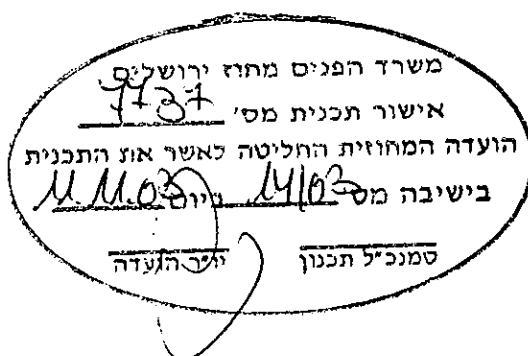 משרד הפנים מחוז ירושלים
אישור תכנית מס' 7737
הועדה המחוזית החליטה לאשר את התכנית
בישיבה מס' 14/03 ביום 11.11.03
סמנכ"ל תכנון יו"ר הועדה